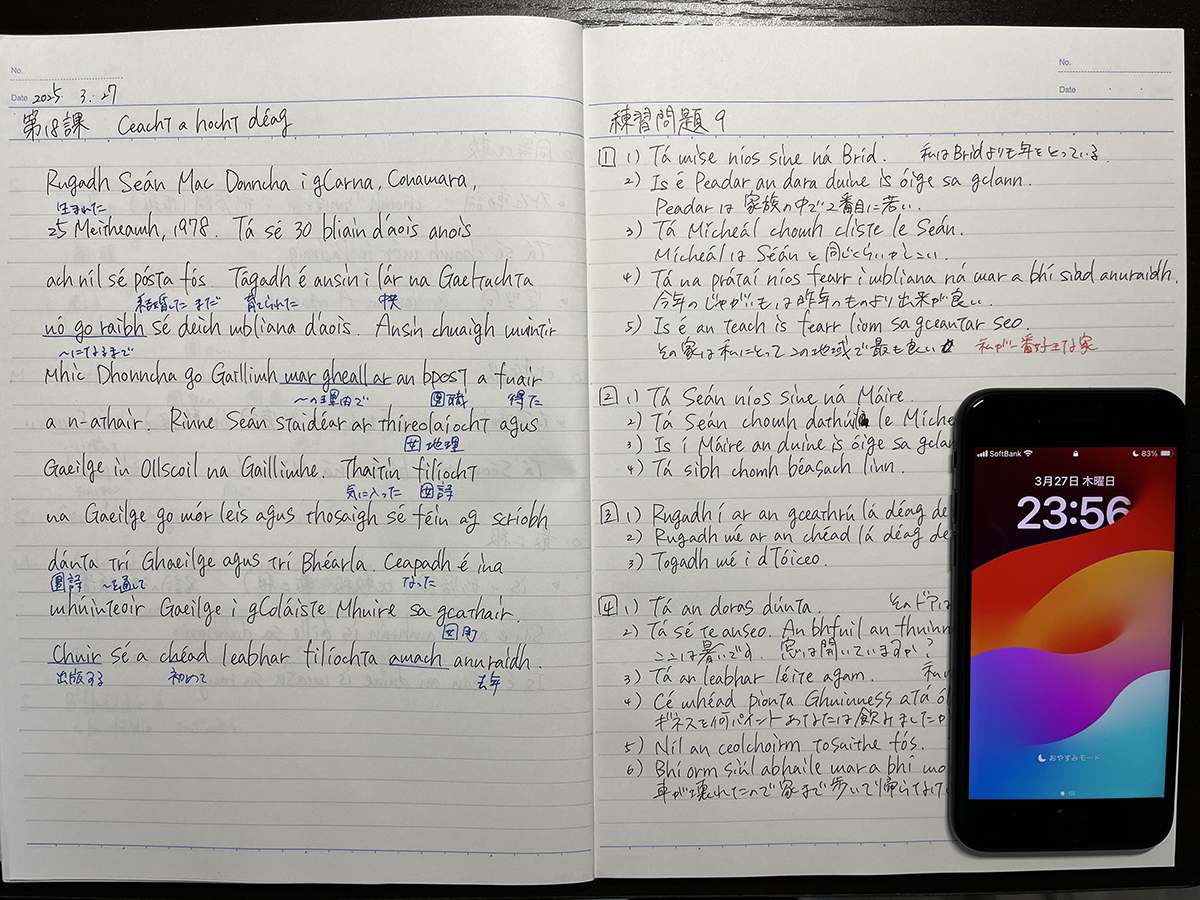 No.
Date 2025. 3. 27
第18課 Ceacht a hocht déag
Rugadh Seán Mac Donncha i gCarna, Conamara,
生まれた
25 Meitheamh, 1978. Tá sé 30 bliain d'aois anois
ach níl sé pósta fós. Tógadh é ansin i lár na Gaeltachta
結婚した まだ 育てられた 中央
nó go raibh sé deich mbliana d'aois. Ansin chuaigh muintir
〜になるまで
Mhic Dhonncha go Gaillimh mar gheall ar an bpost a fuair
〜の理由で 男職 得た
a n-athair. Rinne Seán staidéar ar thíreolaíocht agus
女地理
Gaeilge in Ollscoil na Gaillimhe. Thaitin filíocht
気に入った 女詩
na Gaeilge go mór leis agus thosaigh sé féin ag scríobh
dánta trí Ghaeilge agus trí Bhéarla. Ceapadh é ina
男詩 〜を通して なった
mhúinteoir Gaeilge i gColáiste Mhuire sa gcathair.
女町
Chuir sé a chéad leabhar filíochta amach anuraidh.
出版する 初めて 去年
No.
Date
練習問題 9
1 1) Tá mise níos sine ná Bríd. 私はBrídよりも年をとっている.
2) Is é Peadar an dara duine is óige sa gclann.
Peadarは家族の中で2番目に若い.
3) Tá Mícheál chomh cliste le Seán.
MícheálはSéánと同じくらいかしこい.
4) Tá na prátaí níos fearr i mbliana ná mar a bhí siad anuraidh.
今年のじゃがいもは昨年のものより出来が良い.
5) Is é an teach is fearr liom sa gceantar seo.
その家は私にとってこの地域で最も良い 私が一番好きな家
2 1) Tá Seán níos sine ná Máire.
2) Tá Seán chomh dathúil le Míche
3) Is í Máire an duine is óige sa gclan
4) Tá sibh chomh béasach linn.
3 1) Rugadh í ar an gceathrú lá déag de
2) Rugadh mé ar an chéad lá déag de
3) Togadh mé i dTóiceo.
4 1) Tá an doras dúnta. そのドアは
2) Tá sé te anseo. An bhfuil an fhuinn
ここは暑いです. 窓は開いていますか?
3) Tá an leabhar léite agam. 私
4) Cé mhéad pionta Ghuinness atá ó
ギネスを何パイントあなたは飲みましたか
5) Níl an ceolchoirm tosaithe fós.
6) Bhí orm siúl abhaile mar a bhí mo
車が壊れたので家まで歩いて帰らなけ
SoftBank 83%
3月27日 木曜日
23:56
おやすみモード